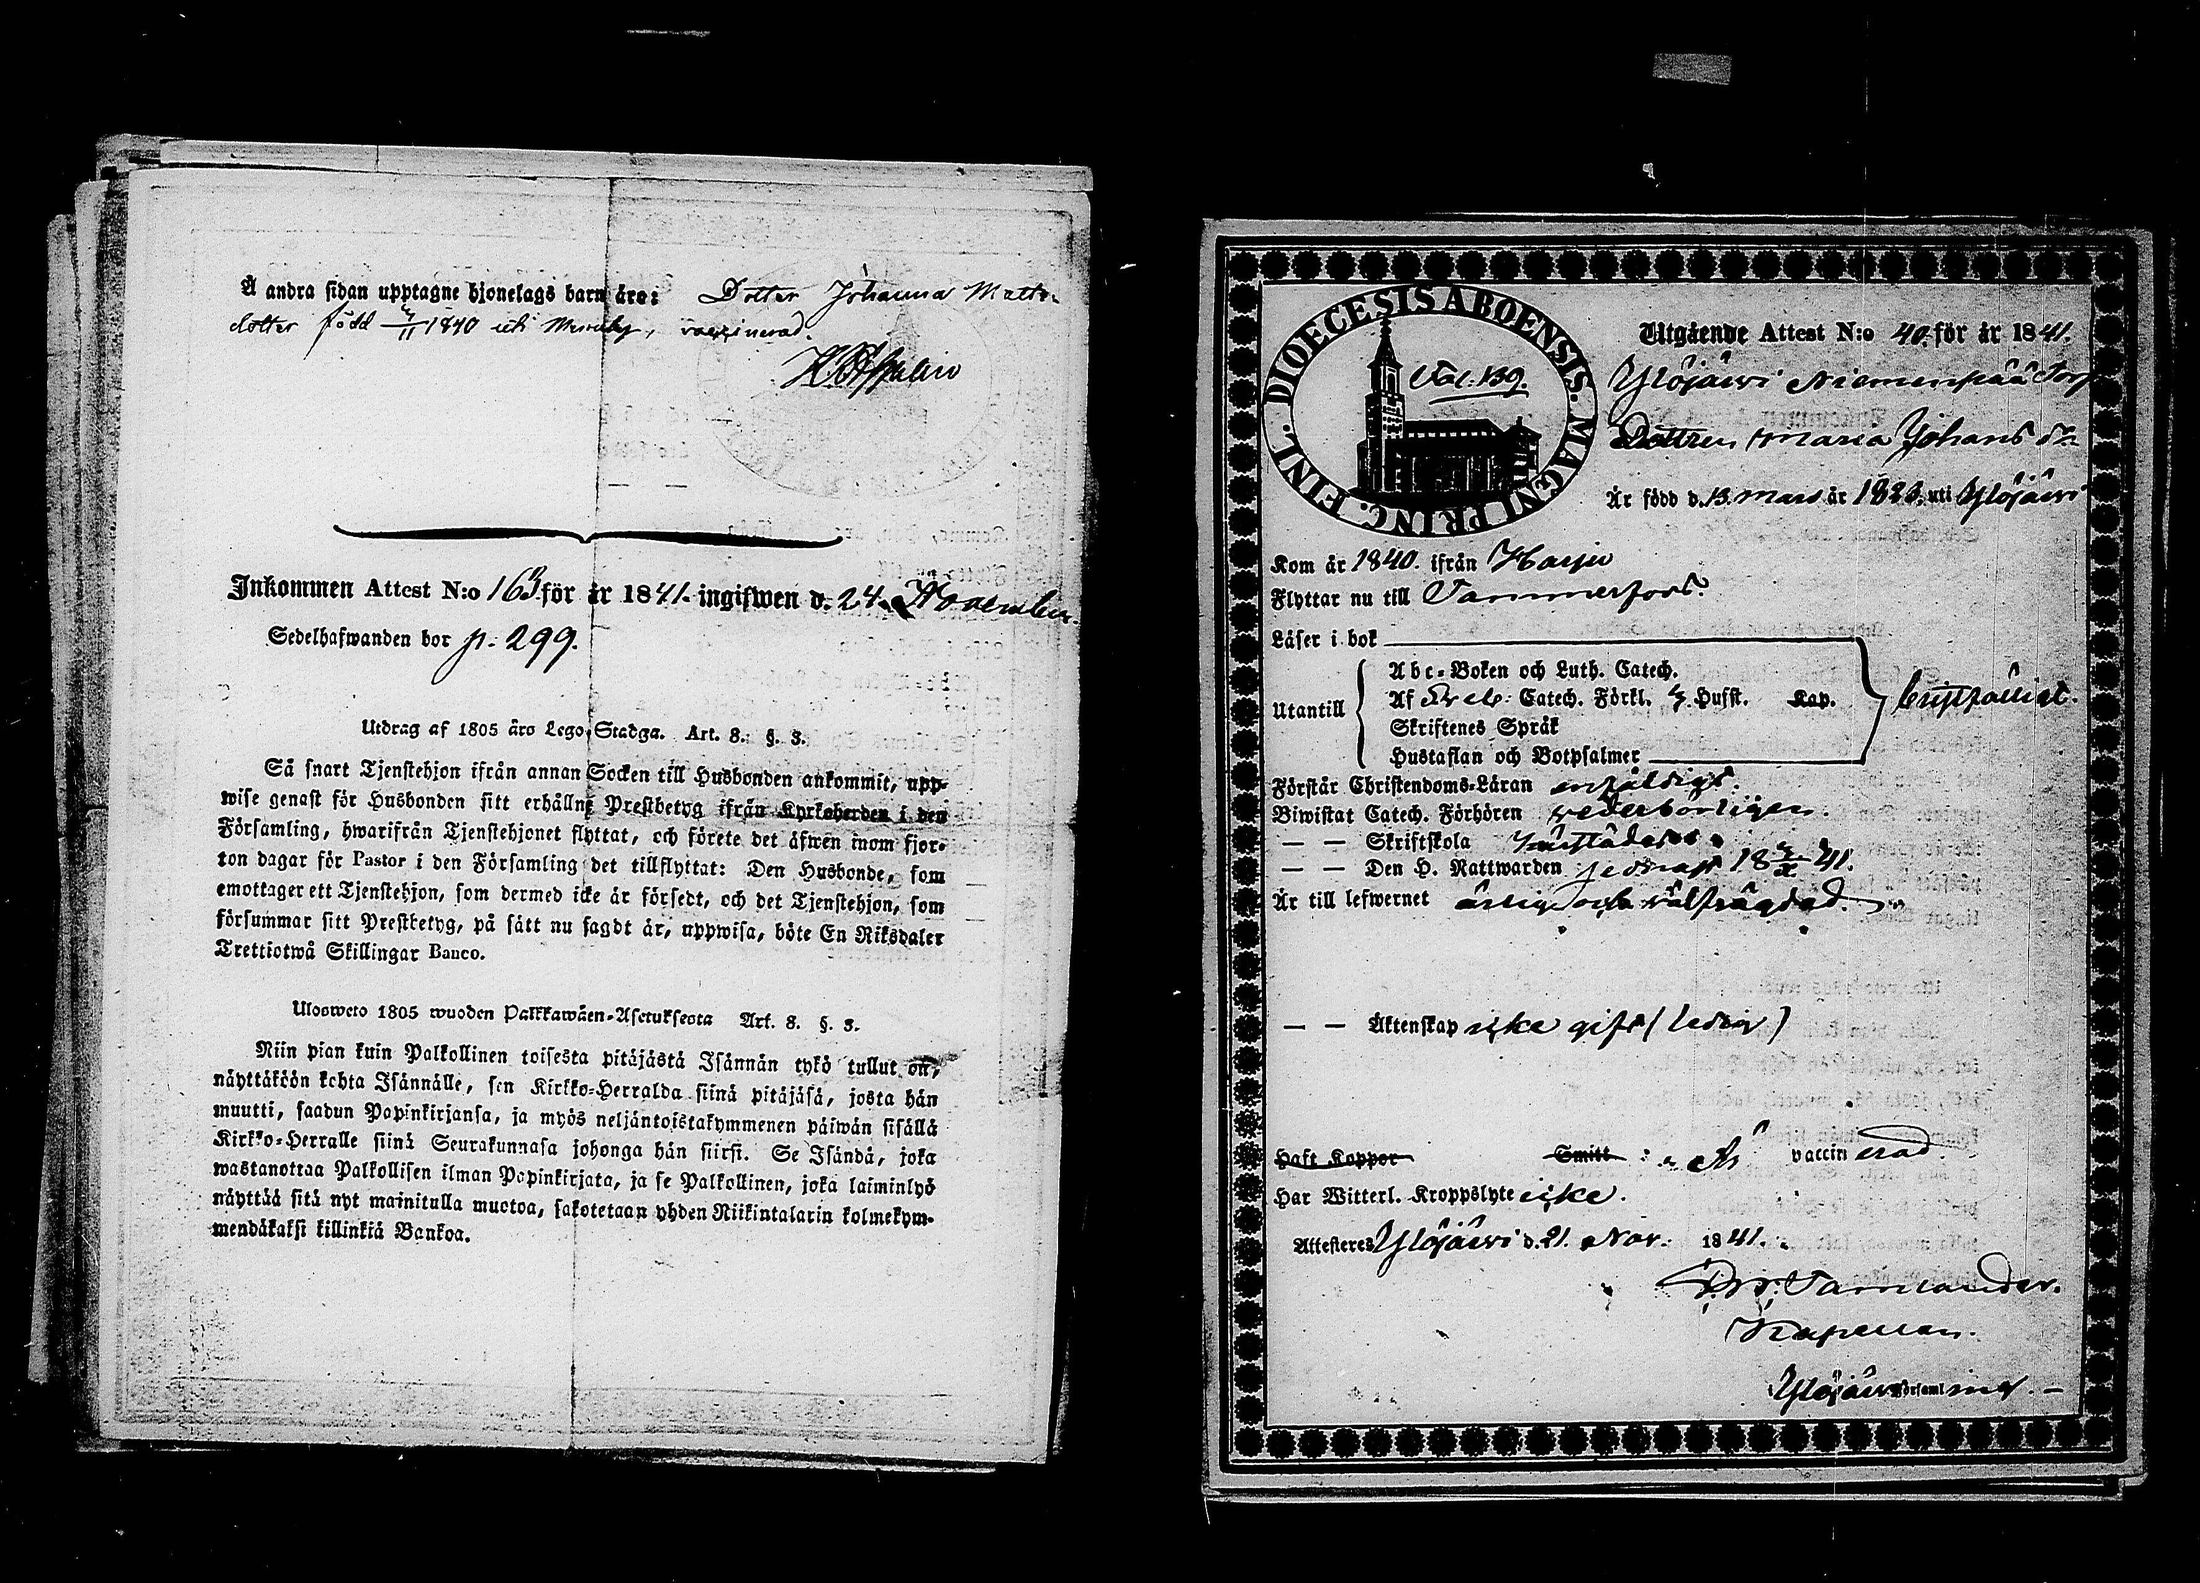 Å andra sidan upptagne hjonelags barn äro: Dotter Johanna Matts-
dotter född 4/11 1840 uti, vaccinerad.
Inkommen Attest N:o 163 för år 1841. ingifwen d. 24. November.
Sedelhafwanden bor p. 299.
Utdrag af 1805 års Lego-Stadga. Art. 8. §. 3.
Så snart Tjenstehjon ifrån annan Socken till Husbonden ankommit, upp-
wise genast för Husbonden sitt erhållne Prestbetyg ifrån Kyrkoherden i den
Församling, hwarifrån Tjenstehjonet flyttat, och förete det äfwen inom fjor-
ton dagar för Pastor i den Församling det tillflyttat: Den Husbonde, som
emottager ett Tjenstehjon, som dermed icke är försedt, och det Tjenstehjon, som
försummar sitt Prestbetyg, på sätt nu sagdt är, uppwisa, böte En Riksdaler
Trettiotwå Skillingar Banco.
Ulosweto 1805 wuoden Palkkawäen-Asetuksesta Art. 8. §. 3.
Niin pian kuin Palkollinen toisesta pitäjästä Isännän tykö tullut on,
näyttäköön kohta Isännälle, sen Kirkko-Herralda siinä pitäjäsä, josta hän
muutti, saadun Papinkirjansa, ja myös neljäntoistakymmenen päiwän sisällä
Kirkko-Herralle siinä Seurakunnasa johonga hän siirsi. Se Isändä, joka
wastanottaa Palkollisen ilman Papinkirjata, ja se Palkollinen, joka laiminlyö
näyttää sitä nyt mainitulla muotoa, sakotetaan yhden Riikintalarin kolmekym-
mendäkaksi killinkiä Bankoa.
DIOECESIS ABOENSIS. MAGNI PRINC. FINL.
Utgående Attest N:o 40. för år 1841.
Ylöjärwi Niemenpää Torp
Dottren Maria Johans dr
Är född d. 13. Mars år 1823. uti Ylöjärwi
Kom år 1840. ifrån Harju
Flyttar nu till Tammerfors.
Läser i bok
Abc-Boken och Luth. Catech.
Utantill Af Sveb: Catech. Förkl. 4 Hufst. Kap.
Skriftenes Språk
Hustaflan och Botpsalmer
Förstår Christendoms-Läran enfäldigt.
Biwistat Catech. Förhören wederbörligen.
— — Skriftskola
— — Den H. Nattwarden sednast 18 41.
Är till lefwernet ärlig och wälfrägdad.
— — Äktenskap icke gift (ledig)
Haft Koppor Smitt: är vaccinerad.
Har Witterl. Kroppslyte icke.
Attesteres Ylöjärwi d. 21. Nov. 1841.
Tamlander.
Kapellan.
Ylöjärwi församling.